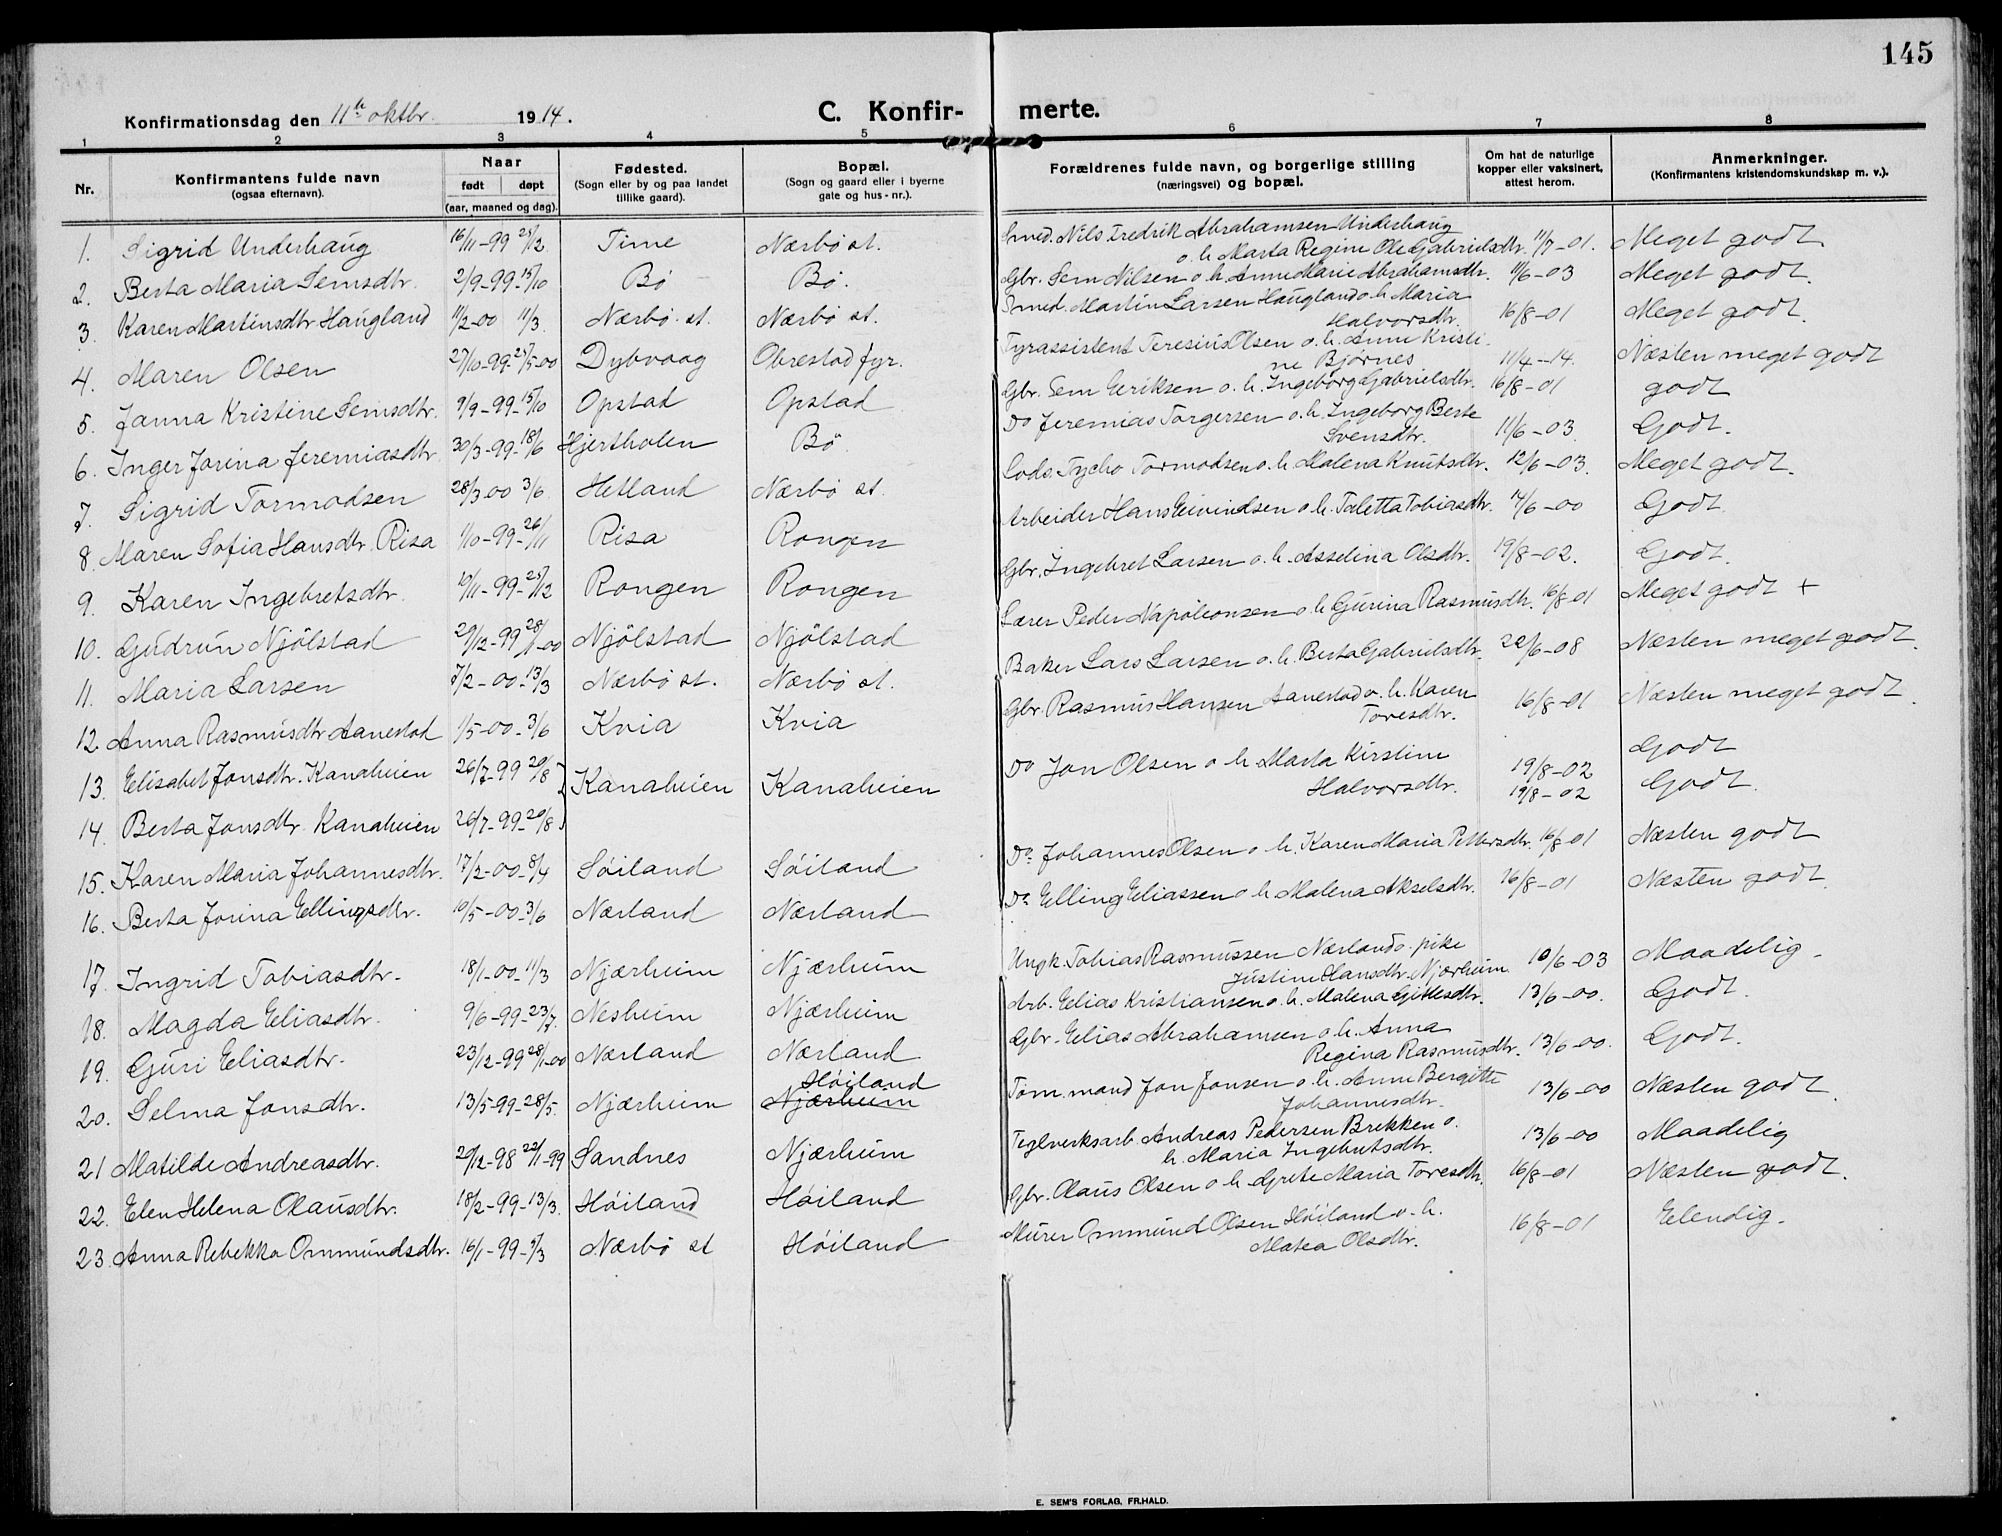 145
Konfirmationsdag den 11te oktbr. 1914.
C. Konfir- merte.
1 2 3 4 5 6 7 8
Nr.
Konfirmantens fulde navn
(ogsaa efternavn).
Naar
født døpt
(aar, maaned og dag).
Fødested.
(Sogn eller by og paa landet
tillike gaard).
Bopæl.
(Sogn og gaard eller i byerne
gate og hus-nr.).
Forældrenes fulde navn, og borgerlige stilling
(næringsvei) og bopæl.
Om hat de naturlige
kopper eller vaksinert,
attest herom.
Anmerkninger.
(Konfirmantens kristendomskundskap m. v.).
1. Sigrid Underhaug 16/11-99 25/12 Time Nærbø st. Smed. Nils Fredrik Abrahamsen Underhaug
o. h. Marta Regine Ole Gabrielsdtr. 11/7-01. Meget godt
2. Berta Maria Semsdtr. 2/9-99-15/10 Bø Bø. Gbr. Sem Nilsen o. h. Anne Marie Abrahamsdtr. 11/6-03 Meget godt.
3. Karen Martinsdtr Haugland 11/2-00 11/3. Nærbø st. Nærbø st. Smed. Martin Larsen Haugland o. h. Maria
Halvorsdtr. 16/8-01 Meget godt.
4. Maren Olsen 27/10-99-25/5-00 Dybvaag Obrestad fyr. Fyrassistent Teresius Olsen o. h. Anne Kristi-
ne Bjørnes 11/4-14. Næsten meget godt
5. Janna Kristine Semsdtr. 9/9-99-15/10 Opstad Opstad Gbr. Sem Eeriksen o. h. Ingeborg Gabrielsdtr. 16/8-01 godt
6. Inger Jorina Jeremiasdtr 30/3-99-18/6 Hjertholen Bø Do Jeremias Torgersen o. h. Ingeborg Berte
Svensdtr. 11/6-03. Godt.
7. Sigrid Tormodsen 28/3-00 3/6. Hetland Nærbø st. Lods. Tycho Tormodsen o. h. Malena Knutsdtr. 12/6-03. Meget godt.
8. Maren Sofia Hansdtr. Risa 1/10-99-26/11 Risa Rongen Arbeider Hans Eivindsen o. h. Taletta Tobiasdtr. 14/6-00 Godt.
9. Karen Ingebretsdtr. 10/11-99-25/12 Rongen Rongen Gbr. Ingebret Larsen o. h. Asselina Olsdtr. 19/8-02. Godt.
10. Gudrun Njølstad 29/12-99 28/1-00 Njølstad Njølstad Lærer Peder Napoleonsen o. h. Gurina Rasmusdtr. 16/8-01 Meget godt +
11. Maria Larsen 7/2-00-13/3 Nærbø st. Nærbø st. Baker Lars Larsen o. h. Berta Gabrielsdtr. 22/6-08 Næsten meget godt.
12. Anna Rasmusdtr Aanestad 1/5-00-3/6 Kvia Kvia Gbr. Rasmus Hansen Aanestad o. h. Karen
Toresdtr. 16/8-01 Næsten meget godt.
13. Elisabet Jonsdtr. Kanaheien 26/7-99 20/8 Kanaheien Kanaheien Do Jon Olsen o h Marta Kirstine
Halvorsdtr. 19/8-02 Godt
14. Berta Jonsdtr. Kanaheien 26/7-99-20/8 19/8-02 Godt.
15. Karen Maria Johannesdtr. 17/2-00-8/4 Søiland Søiland Do. Johannes Olsen o. h. Karen Maria Pettersdtr. 16/8-01 Næsten godt
16. Berta Jorina Ellingsdtr. 10/5-00-3/6 Nærland Nærland Do. Elling Eliassen o h Malena Akselsdtr. 16/8-01 Næsten godt.
17. Ingrid Tobiasdtr. 18/1-00-11/3 Njærheim Njærheim Ungk. Tobias Rasmussen Nærland o. pike
Justine Hansdtr. Njærheim 10/6-03 Maadelig
18. Magda Eliasdtr. 9/6-99-23/7. Nesheim Njærheim Arb. Eelias Kristiansen o. h. Malena Gittlesdtr. 13/6-00. Godt.
19. Guri Eeliasdtr. 23/12-99 28/1-00 Nærland Nærland Gbr. Eelias Abrahamsen o. h. Anna
Regina Rasmusdtr. 13/6-00. Godt.
20. Selma Jonsdtr. 13/5-99-28/5. Njærheim Høiland
Njærheim Tøm. mand Jon Jonsen o. h. Anne Bergitte
Johannesdtr. 13/6-00 Næsten godt
21 Matilde Andreasdtr. 29/12-98 22/1-99 Sandnes Njærheim Teglverksarb. Andreas Pedersen Brekken o.
h. Maria Ingebretsdtr. 13/6-00 Maadelig
22. Elen Helena Olausdtr. 18/2-99-13/3. Høiland Høiland Gbr. Olaus Olsen o h Grete Maria Toresdtr. 16/8-01 Næsten godt.
23. Anna Rebekka Ommundsdtr. 16/1-99-5/3 Nærbø st Høiland Murer Ommund Olsen Høiland o. h.
Matea Olsdtr. 16/8-01 Elendig.
E. SEM'S FORLAG, FR.HALD.